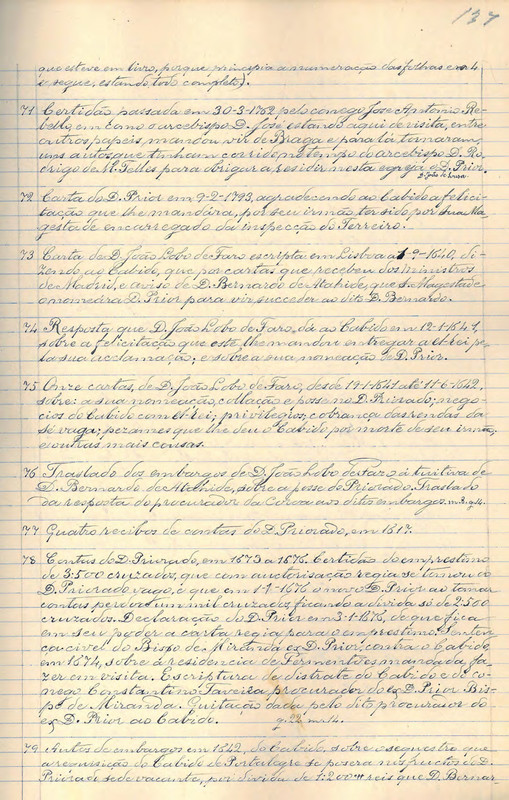 137
que esteve em livro, porque principia a numeração das folhas em 4
e segue, estando todo completo).
71 Certidão passada em 30-3-1762, pelo conego José Antonio Re-
bello, em como o arcebispo D. José, estando aqui de visita, entre
outros papeis, mandou vir de Braga e para lá tornaram,
uns autos que tinham corrido no tempo do arcebispo D. Ro-
drigo de M. Telles para obrigar a residir nesta egreja o D. Prior.
D. João de Sousa.
72 Carta do D. Prior em 9-2-1793, agradecendo ao Cabido a felici-
tação que lhe mandára, por seu irmão ter sido por Sua Ma-
gestade encarregado da inspecção do Terreiro.
73 Carta de D. João Lobo de Faro escripta em Lisboa a 1-9-1640, di-
zendo ao Cabido, que por cartas que recebeu dos ministros
de Madrid, e aviso de D. Bernardo de Atahide, que S. Magestade
o nomeára D. Prior para vir succeder ao dito D. Bernardo.
74 Resposta que D. João Lobo de Faro, dá ao Cabido em 12-1-1641,
sobre a felicitação que este lhe mandou entregar a el-lei pe-
la sua acclamação; e sobre a sua nomeação de D. Prior.
75 Onze cartas, de D. João Lobo de Faro, desde 19-1-1641 até 11-6-1642,
sobre: a sua nomeação, collação e posse no D. Priorado; nego-
cios do Cabido com el-lei; privilegios; cobrança das rendas da
sé vaga; pezames que lhe deu o Cabido por morte de seu irmão,
e outras mais cousas.
76 Traslado dos embargos de D. João Lobo de Faro á tuitiva de
D. Bernardo de Atahide, sobre a posse do Priorado. Traslado
da resposta do procurador da Coroa aos ditos embargos. m. 8. g. 14.
77 Quatro recibos de contas do D. Priorado, em 1617.
78 Contas do D. Priorado, em 1673 a 1676. Certidão do emprestimo
de 3:500 cruzados, que com auctorisação regia se tomou ao
D. Priorado vago, e que em 1-1-1676 o novo D. Prior ao tomar
contas perdoou um mil cruzados, ficando a divida só de 2:500
cruzados. Declaração do D. Prior em 3-1-1676, de que fica
em seu poder a carta regia para o emprestimo. Senten-
ça civel do Bispo de Miranda ex D. Prior, contra o Cabido,
em 1674, sobre a residencia de Formentões mandada fa-
zer em visita. Escriptura de distrate do Cabido e do co-
nego Constantino Taveira procurador do ex D. Prior Bis-
po de Miranda. Quitação dada pelo dito procurador do
ex D. Prior ao Cabido. g. 22 m. 14.
79 Autos de embargos em 1642, do Cabido, sobre o sequestro que
a requisição do Cabido de Portalegre se pozera nos fructos do D.
Priorado sede vacante, por divida de 1:200$ reis que D. Bernar-